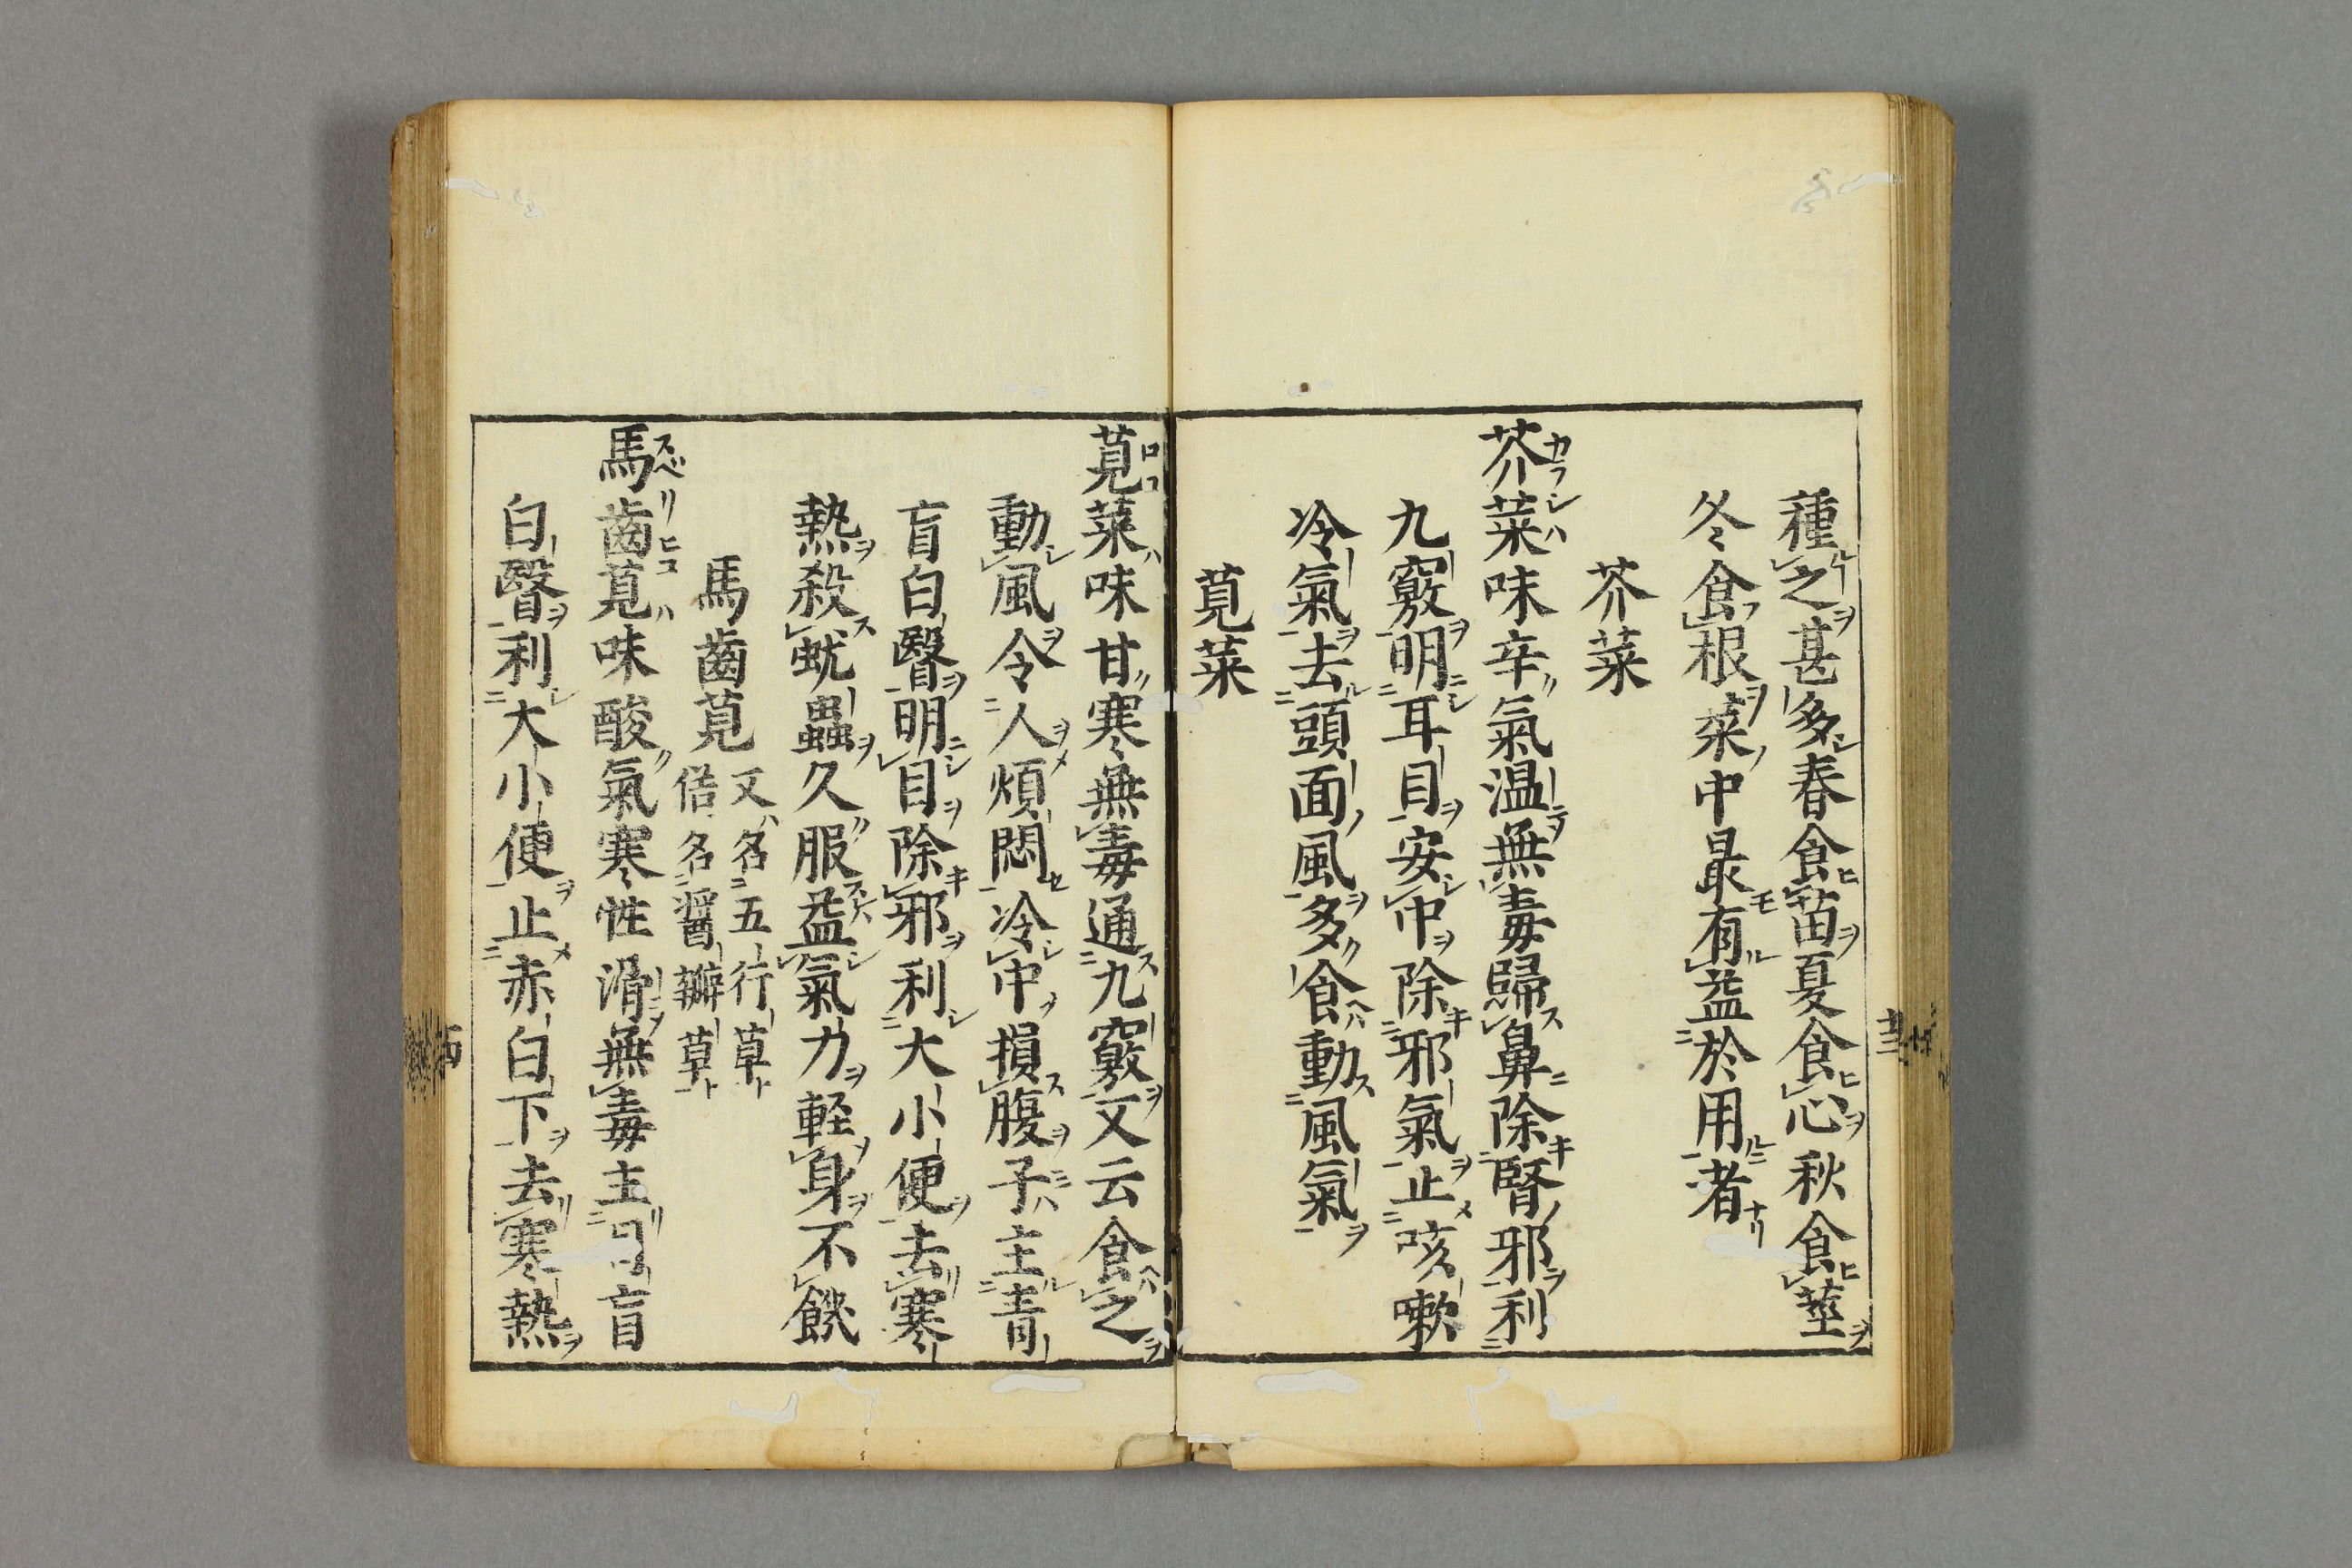 種之甚多春食苗夏食心秋食莖
冬食根菜中最有益於用者
芥菜
芥菜味辛氣温無毒歸鼻除腎邪利
九竅明耳目安中除邪氣止咳嗽
冷氣去頭面風多食動風氣
莧菜
莧菜味甘寒無毒通九竅又云食之
動風令人煩悶冷中損腹子主青
盲白瞖明目除邪利大小便去寒
熱殺蚘蟲久服益氣力軽身不饑
馬齒莧 又名五行草
俗名醤瓣草
馬齒莧味酸氣寒性滑無毒主盲
白瞖利大小便止赤白下去寒熱